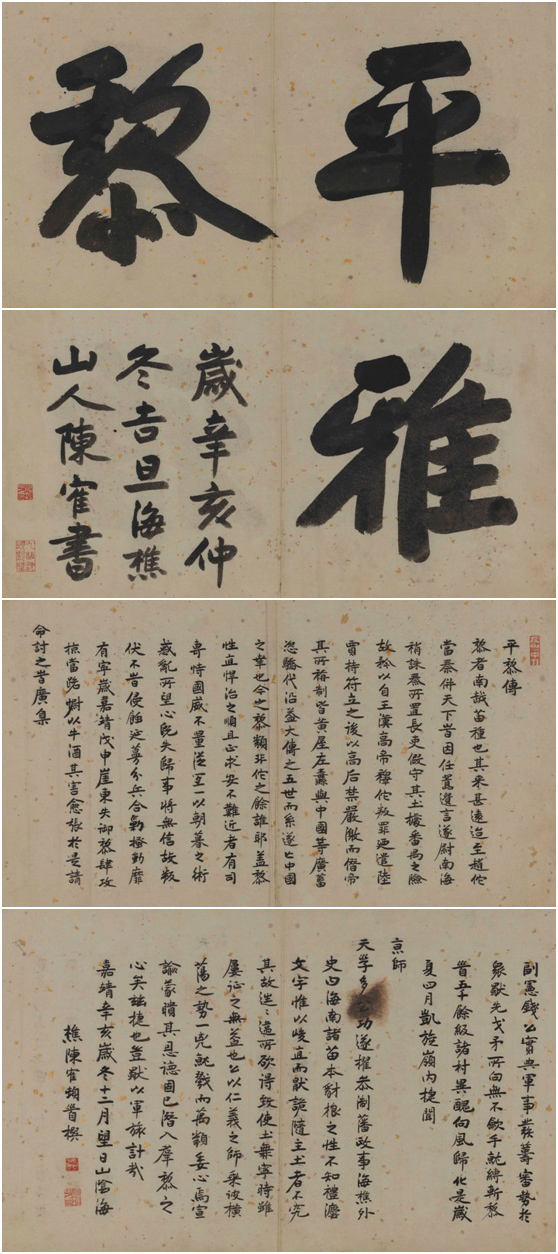 平
黎
雅
歲辛亥仲
冬吉旦海樵
山人陳寉書
平黎傳
黎者南越苗種也其来甚遠迨至趙佗
當秦併天下苦因任囂遺言遂尉南海
稍誅秦所置長吏假守其土據番禺之險
故以自王漢高帝佗叛罪廼遣陸
賈持符立之後以高后禁嚴激而僭帝
其所稱制皆黃屋左纛與中國等廣蓄
恣驕代沿益大傳之五世而系遂亡中國
之幸也今之黎類非佗之餘誰耶蓋黎
性直悍治之順且正求安不難近者有司
專恃國威不量一以朝暮之術
亂所望心既失歸事將無信故叛
伏不啻使餘延蔓分兵合動靡
有寧歲嘉靖戊申崖東失御黎肆攻
掠當路以牛酒其害愈張於是請
命討之皆廣集
副憲錢公實典軍事發籌審勢於
衆猷先戈矛所向無不歛手就縛斬黎
首五千餘級諸村異醜向風歸化是歲
夏四月凱旋嶺內捷聞
京師
天孚多公功遂擢藩政事海樵外
史曰海南諸苗本豺狼之性不知禮讓
文字惟以峻直而獸詭隨主土者不究
其故所欲致使土無寧時雖
屢征之無益也公以仁義之師乘彼橫
蕩之勢一就戮而萬類委心焉宣
諭蒙瞶其恩德固已潛入羣黎之
心矣茲捷也豈以軍旅計哉
嘉靖辛亥歲冬十二月望日山陰海
樵陳寉頓首撰